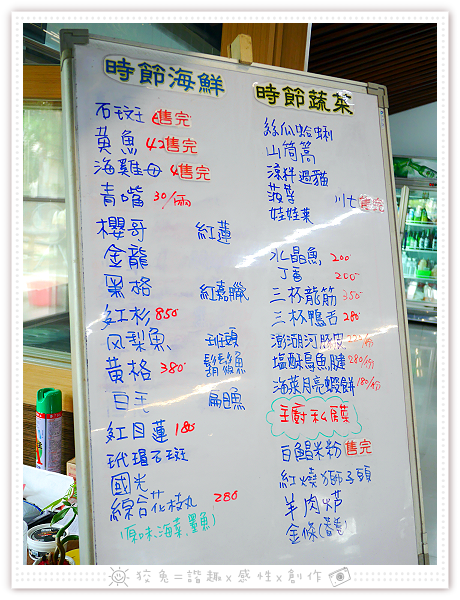 時節海鮮
石斑 售完
黃魚 42售完
海雞母 售完
青嘴 30/兩
櫻哥 紅蓮
金龍
黑格 紅嘉臘
紅杉 850
鳳梨魚 斑頭
黃格 380 鬍鬚魚
白毛 扁魚
紅目蓮 180
玳瑁石斑
國光
綜合花枝丸 280
(原味、海菜、墨魚)
時節蔬菜
絲瓜蛤蜊
山茼蒿
涼拌過貓
菠菜 川七售完
娃娃菜
水晶魚 200
丁香 200
三杯龍筋 350
三杯鴨舌 280
澎湖河豚皮
塩酥烏魚腱 280/份
海菜月亮蝦餅 180/份
主廚私房菜
白鯧米粉售完
紅燒獅子頭
羊肉爐
金條(番薯)
狡兔=諧趣x感性x創作